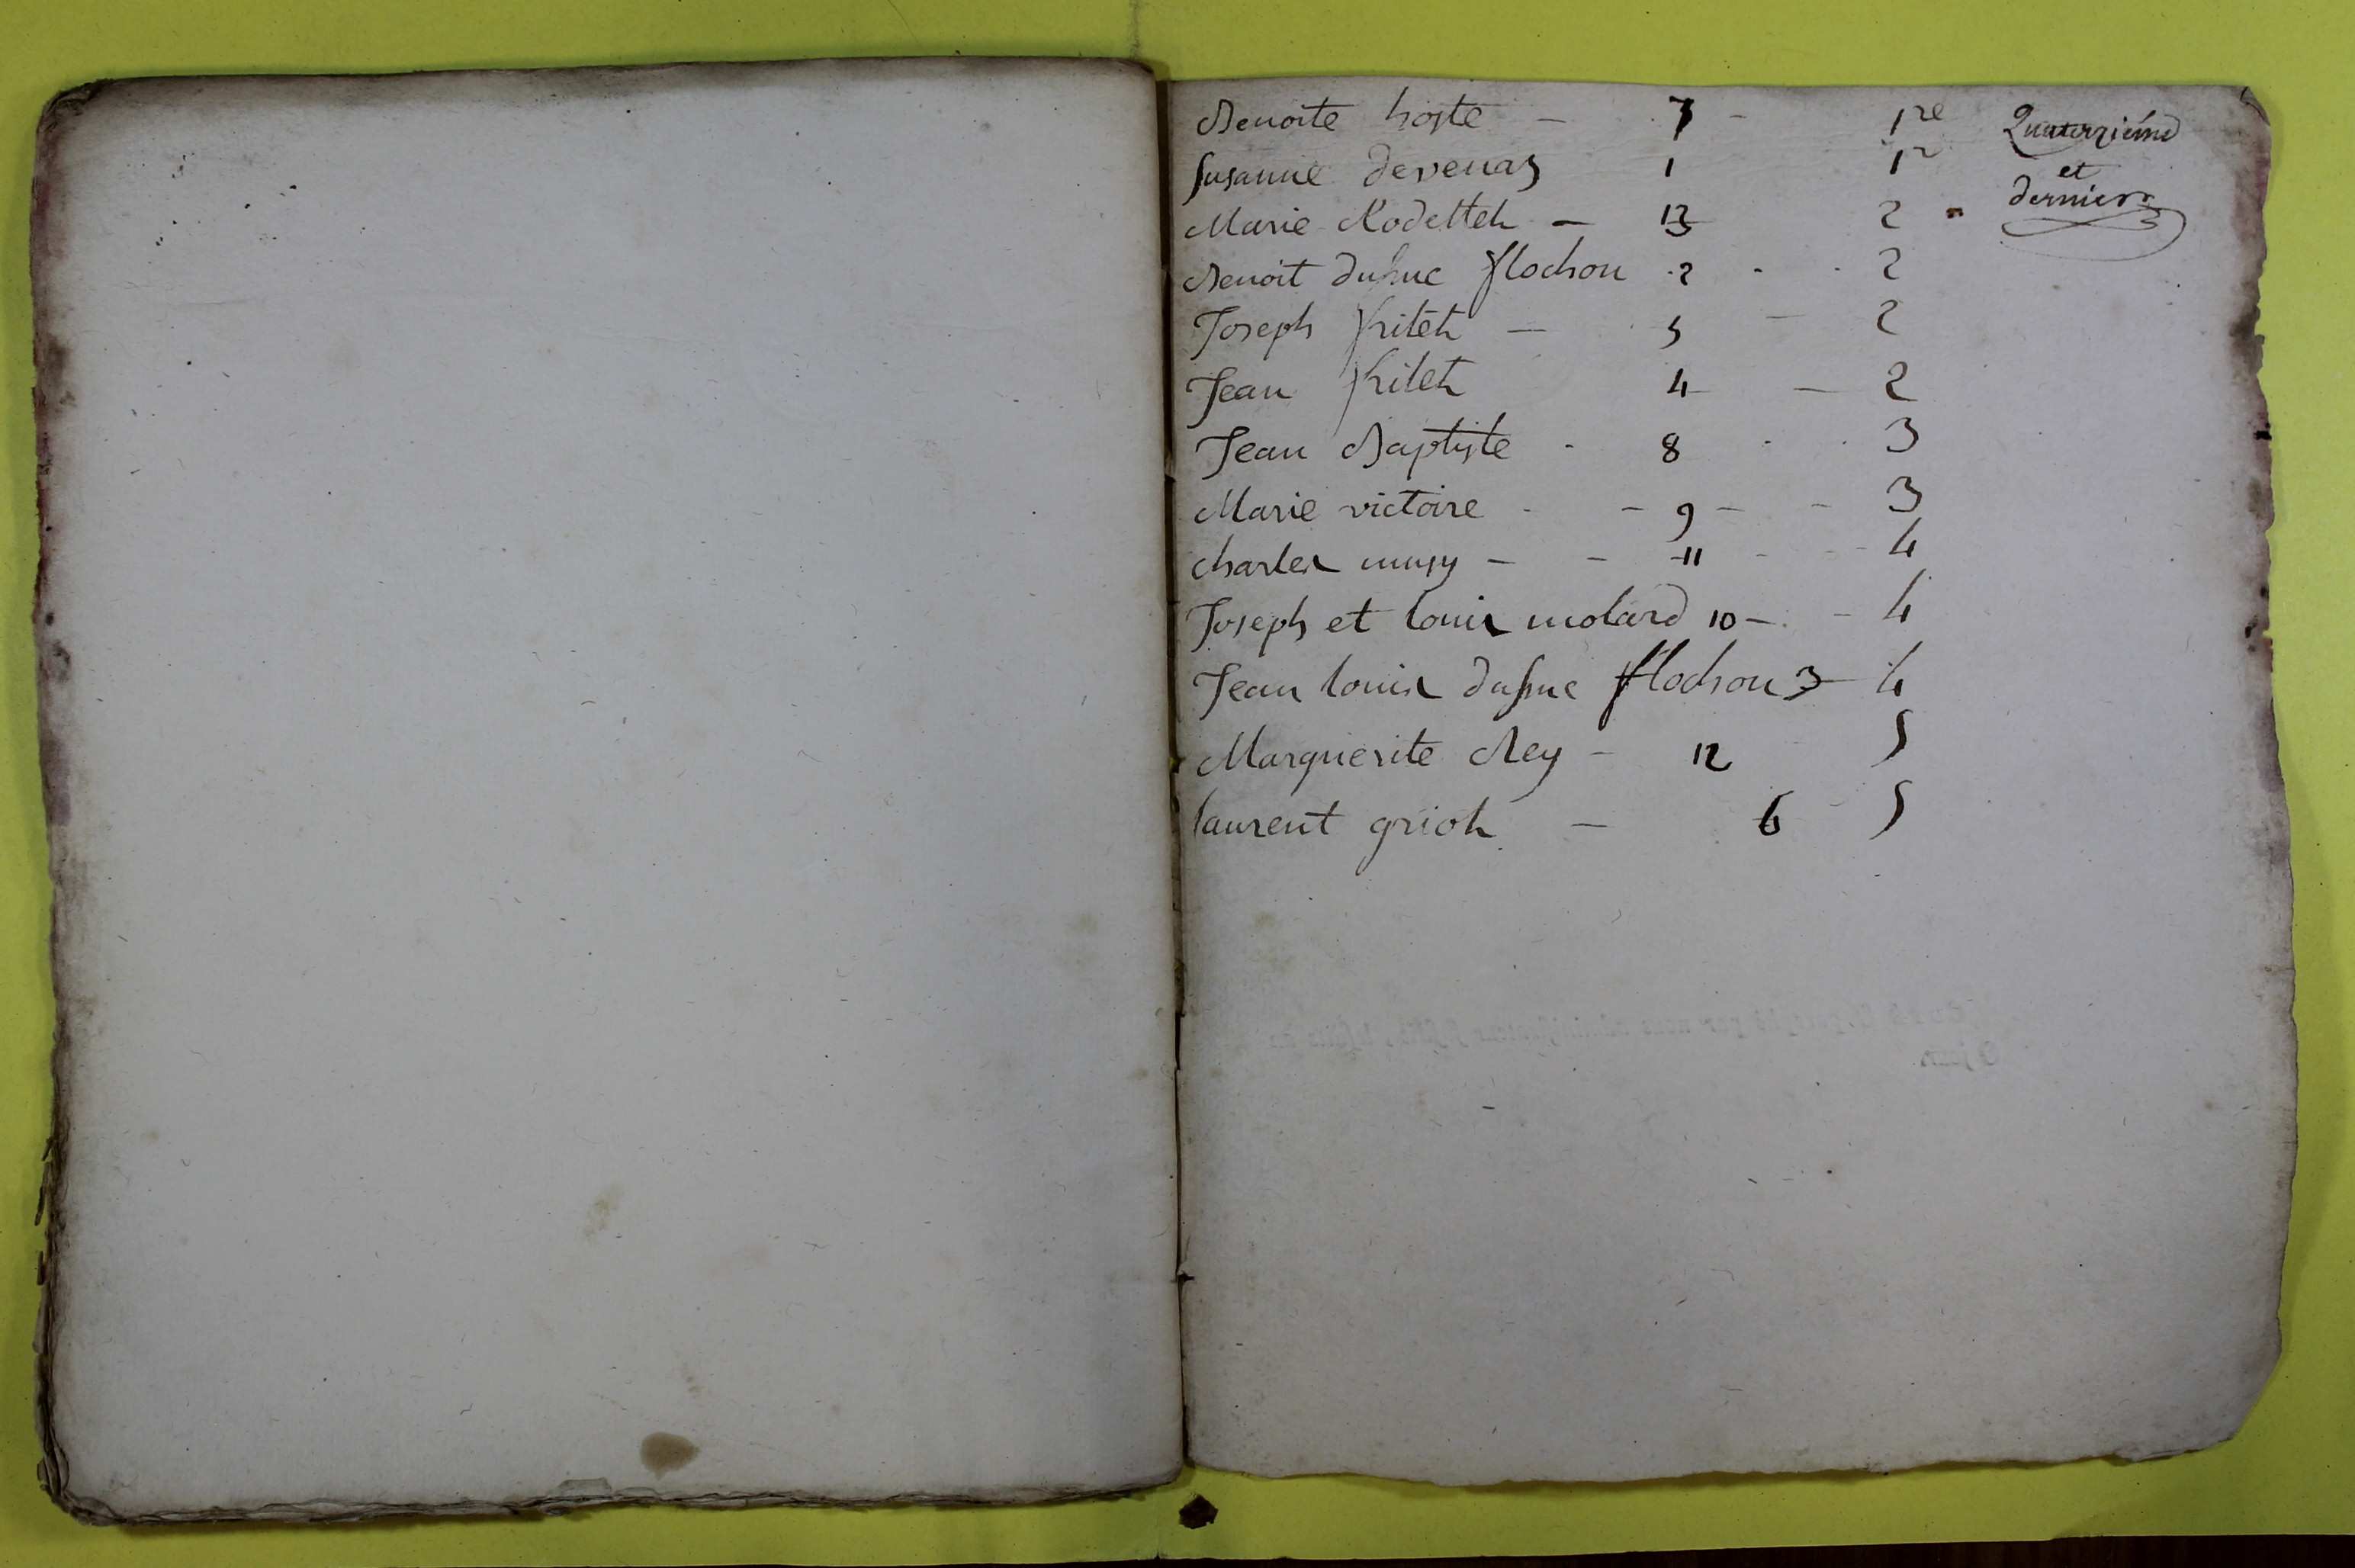 Benoite hoste - 7 - 1re
Susanne devenaz 1 1re
Marie Rodetteh - 13 2
Benoit duhuc flochon 2 - 2
Joseph fiiteh - 5 - 2
Jean fiileh 4 - 2
Jean Baptiste - 8 - 3
Marie victoire - 9 - 3
charles mugy - 11 - 4
Joseph et louis molard 10 - 4
Jean louis duhuc flochon 3 - 4
Marguerite Rey - 12 5
laurent grioh - 6 5
Quatorziéme
et
dernier